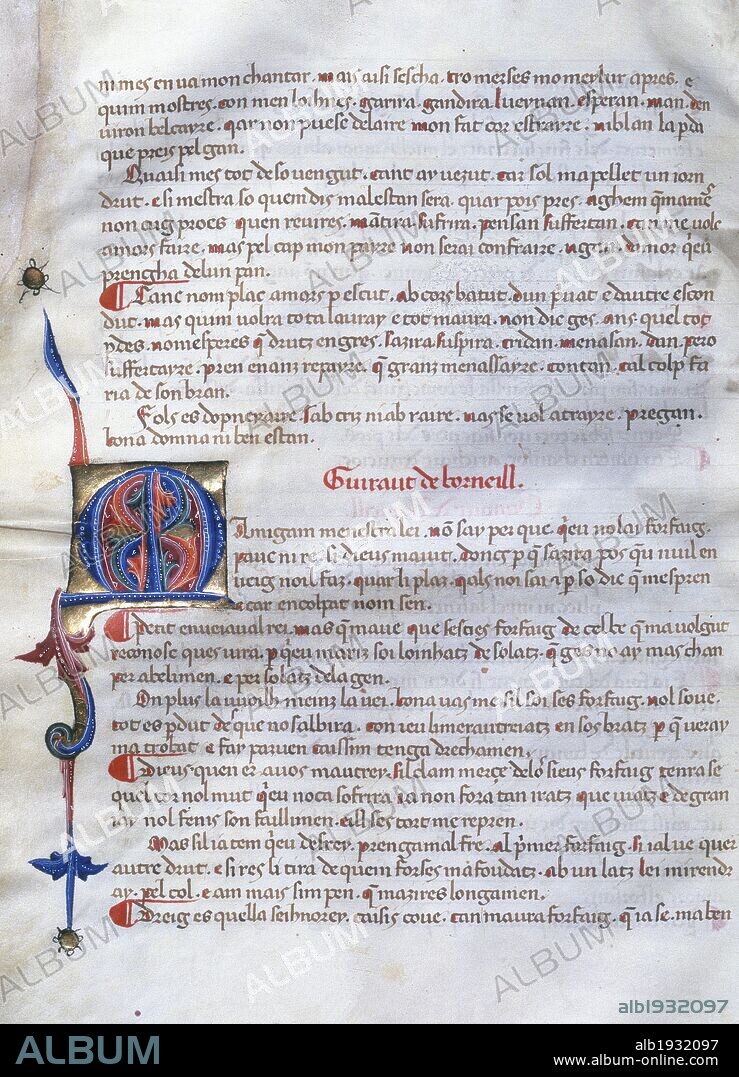 ni mes en va mon chantar. mais aisi sescha. tro merses mo meylur apres. e
quim mostres. con men loihnes. garira. gandira lueynan. esperan. man. den
viron belcayre. qar non puesc delaire mon fat cor estrayre. ni blan la pda
que preis pel gan.
Quaisi mes tot deso vengut. canc ay vezut. car sol ma pellet un iorn
drut. e si mestra so quem dis malestan sera. quar pois pres. aghem
non cug proces quen revires. sufrira. pensan suffertan.
amors faire. mas pel cap mon payre non serai confraire. amor qeu
prengha delun pan.
Canc nom plac amors p escut. ab cors batut. dun pvat e dautre escon
dut. mas quim volra tota lauray e tot maura. non dic ges. ans quel tot
ydes. nomesperes q drutz engres. sazira suspira. cridan. menasan. dan. pero
suffertayre. pren enanz repayre. q granz menassayre. contan. cal colp fa
ria de son bran.
Fols es dopneraire. sab criz ni ab raire. vas se vol atrayre. pregan.
bona domna ni ben estan.
Guiraut de borneill.
M amigam menestra lei. no say per que. qeu nolay forfaig.
pauc ni re. si dieus maiut. doncs p q sazira pos qu nuil en
ueig noil faz. quar li plaz. qals noi sai p so dic q mespren
e car encolpat nom sen.
petit enueiaual rei. mas q maue que sesties forfaig de cel be q ma volgut
reconosc ques vira. p qeu mariz soi loinhatz de solatz. q ges no ay mas chan
per abelimen. e per solatz dela gen.
On plus la vuoilh meinz la vei. bona vas me sil soi ses forfaig. nol soue.
tot es pdut de que no salbira. con ieu limerautreiatz en sos bratz p q veray
ma trobat. e fay paruen caissim tenga drechamen.
Dieus quen er avos mautrey. sil clam merçe delo sieus forfaig tenra se
quel cor nol mut qeu noca sofrira. ia non fora tan iratz que vuitz e degran
iay nol fenis son faillimen. ell ses tort me repren.
Mas sil ia tem qeu delrey. prengamal fre. al pmer forfaig. si ialue quer
autre drut. e si res li tira de quem forses ma foudatz. ab un latz lei mirendr
ay. pel col. e am mais sim pen. q mazires longamen.
Dreig es quella seihnorey. caisis coue. tan maura forfaig. q ia se mal ben
ALBUM
alb1932097
ALBUM
alb1932097
www.album-online.com